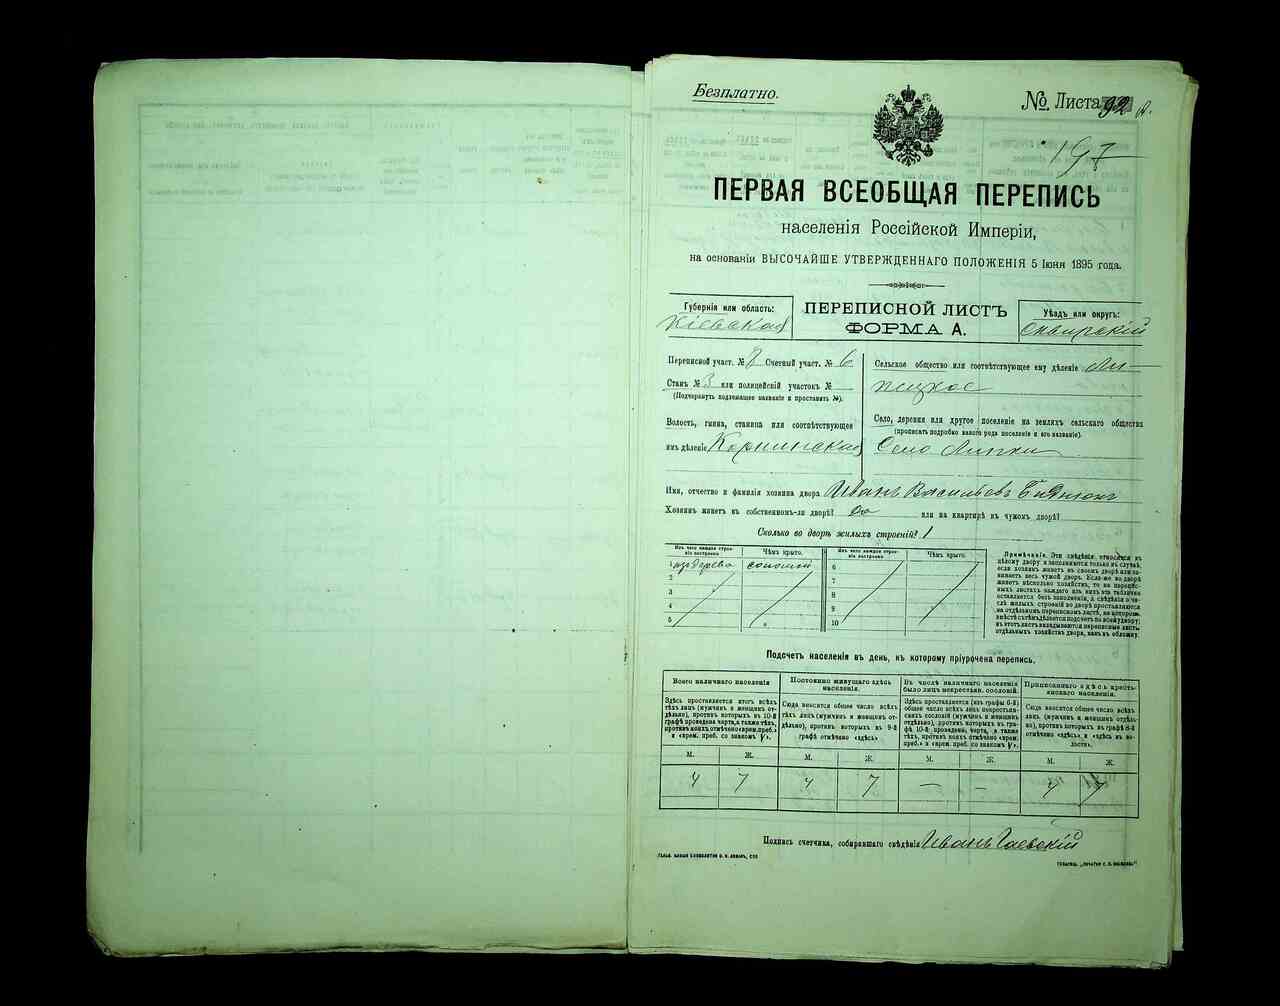 Безплатно.
№ Листа 92
197
ПЕРВАЯ ВСЕОБЩАЯ ПЕРЕПИСЬ
населенія Россійской Имперіи,
на основаніи ВЫСОЧАЙШЕ УТВЕРЖДЕННАГО ПОЛОЖЕНІЯ 5 Іюня 1895 года.
Губернія или область:
Кіевская
ПЕРЕПИСНОЙ ЛИСТЪ
ФОРМА А.
Уѣздъ или округъ:
Сквирскій
Переписной участ. № 7 Счетный участ. № 6
Станъ № 3 или полицейскій участокъ №
(Подчеркнуть подлежащее названіе и проставить №).
Волость, гмина, станица или соотвѣтствующее
имъ дѣленіе Корнинская
Сельское общество или соотвѣтствующее ему дѣленіе Ли-
пецкое
Село, деревня или другое поселеніе на земляхъ сельскаго общества
(прописать подробно какого рода поселеніе и его названіе).
Село Липки
Имя, отчество и фамилія хозяина двора Иванъ Васильевъ
Хозяинъ живетъ въ собственномъ-ли дворѣ? да или на квартирѣ въ чужомъ дворѣ?
Сколько во дворѣ жилыхъ строеній? 1
Изъ чего каждое строе-
ніе построено
Чѣмъ крыто.
Изъ чего каждое строе-
ніе построено
Чѣмъ крыто.
1 изъ дерева соломой 6
2 7
3 8
4 9
5 10
Примѣчаніе. Эти свѣдѣнія относятся къ
цѣлому двору и заполняются только въ случаѣ,
если хозяинъ живетъ въ своемъ дворѣ или за-
нимаетъ весь чужой дворъ. Если-же во дворѣ
живетъ нѣсколько хозяйствъ, то на перепис-
ныхъ листахъ каждаго изъ нихъ эта табличка
оставляется безъ заполненія, а свѣдѣнія о чи-
слѣ жилыхъ строеній во дворѣ проставляются
на отдѣльномъ переписномъ листѣ, на которомъ
вмѣстѣ съ тѣмъ дѣлается подсчетъ по всему двору;
въ этотъ листъ вкладываются переписные листы
отдѣльныхъ хозяйствъ двора, какъ въ обложку.
Подсчетъ населенія въ день, къ которому пріурочена перепись.
Всего наличнаго населенія
Здѣсь проставляется итогъ всѣхъ
тѣхъ лицъ (мужчинъ и женщинъ от-
дѣльно), противъ которыхъ въ 10-й
графѣ проведена черта, а также тѣхъ,
противъ коихъ отмѣчено «врем. преб.»
и «врем. преб. со знакомъ V».
Постоянно живущаго здѣсь
населенія.
Сюда вносится общее число всѣхъ
тѣхъ лицъ (мужчинъ и женщинъ от-
дѣльно), противъ которыхъ въ 9-й
графѣ отмѣчено «здѣсь»
Въ числѣ наличнаго населенія
было лицъ некрестьян. сословій.
Здѣсь проставляется (изъ графы 6-й)
общее число всѣхъ лицъ некрестьян-
скихъ сословій (мужчинъ и женщинъ
отдѣльно), противъ которыхъ въ гра-
фѣ 10-й проведено, черта, а также
тѣхъ, противъ коихъ отмѣчено «врем.
преб.» и «врем. преб. со знакомъ V».
Приписаннаго здѣсь кресть-
янскаго населенія.
Сюда вносится общее число всѣхъ
лицъ (мужчинъ и женщинъ отдѣль-
но), противъ которыхъ въ графѣ 8-й
отмѣчено «здѣсь» и «здѣсь въ во-
лости».
М. Ж. М. Ж. М. Ж. М. Ж.
4 7 4 7 — — 4 7
Подпись счетчика, собиравшаго свѣдѣнія Иванъ Гаевскій